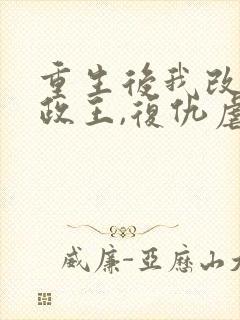 重生後我改
政王,復仇虐
威廉-亞歷山大